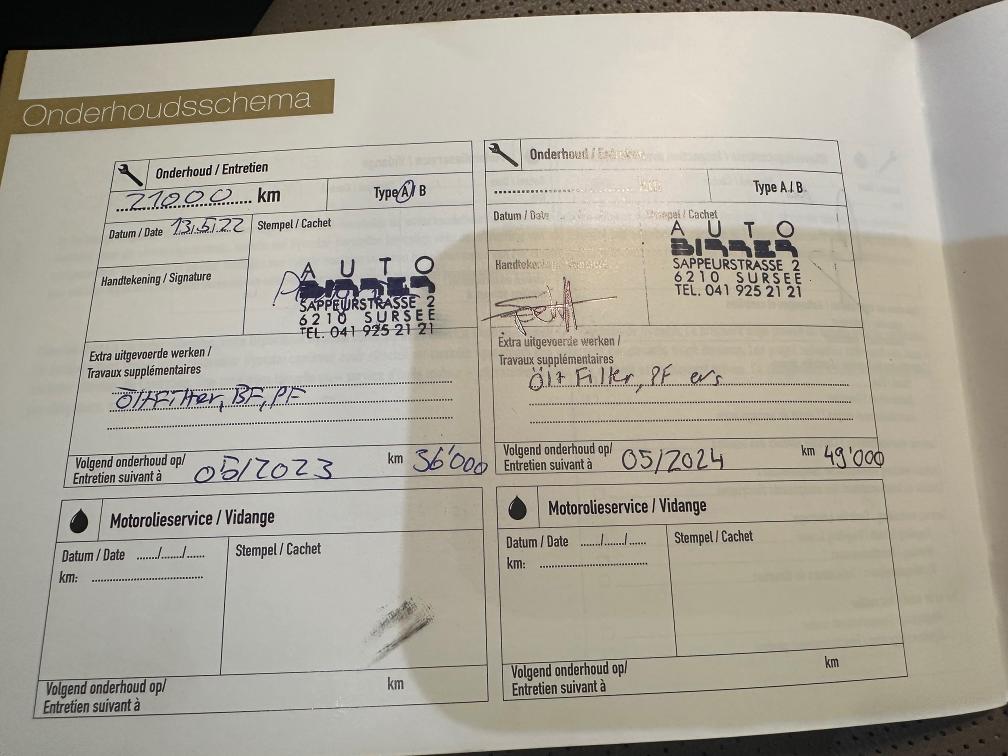 Onderhoudsschema
Onderhoud / Entretien
21000 km
Type A / B
Datum / Date 13.5.22
Stempel / Cachet
Handtekening / Signature
A U T O
BIRRER
SAPPEURSTRASSE 2
6210 SURSEE
TEL. 041 925 21 21
Extra uitgevoerde werken /
Travaux supplémentaires
Öl+Filter, BF, PF
Volgend onderhoud op/
Entretien suivant à 05/2023 km 36'000
Motorolieservice / Vidange
Datum / Date ....../....../......
Stempel / Cachet
km:
Volgend onderhoud op/
Entretien suivant à
km
Onderhoud / Entretien
km
Type A / B
Datum / Date
Stempel / Cachet
Handtekening / Signature
A U T O
BIRRER
SAPPEURSTRASSE 2
6210 SURSEE
TEL. 041 925 21 21
Extra uitgevoerde werken /
Travaux supplémentaires
Öl+Filter, PF ers
Volgend onderhoud op/
Entretien suivant à 05/2024 km 49'000
Motorolieservice / Vidange
Datum / Date ....../....../......
Stempel / Cachet
km:
Volgend onderhoud op/
Entretien suivant à
km